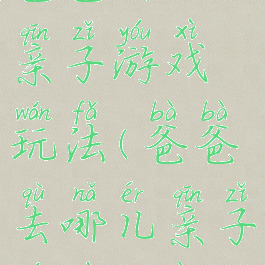 qīn zǐ yóu xì
亲子游戏
wán fǎ bà bà
玩法(爸爸
qù nǎ ér qīn zǐ
去哪儿亲子